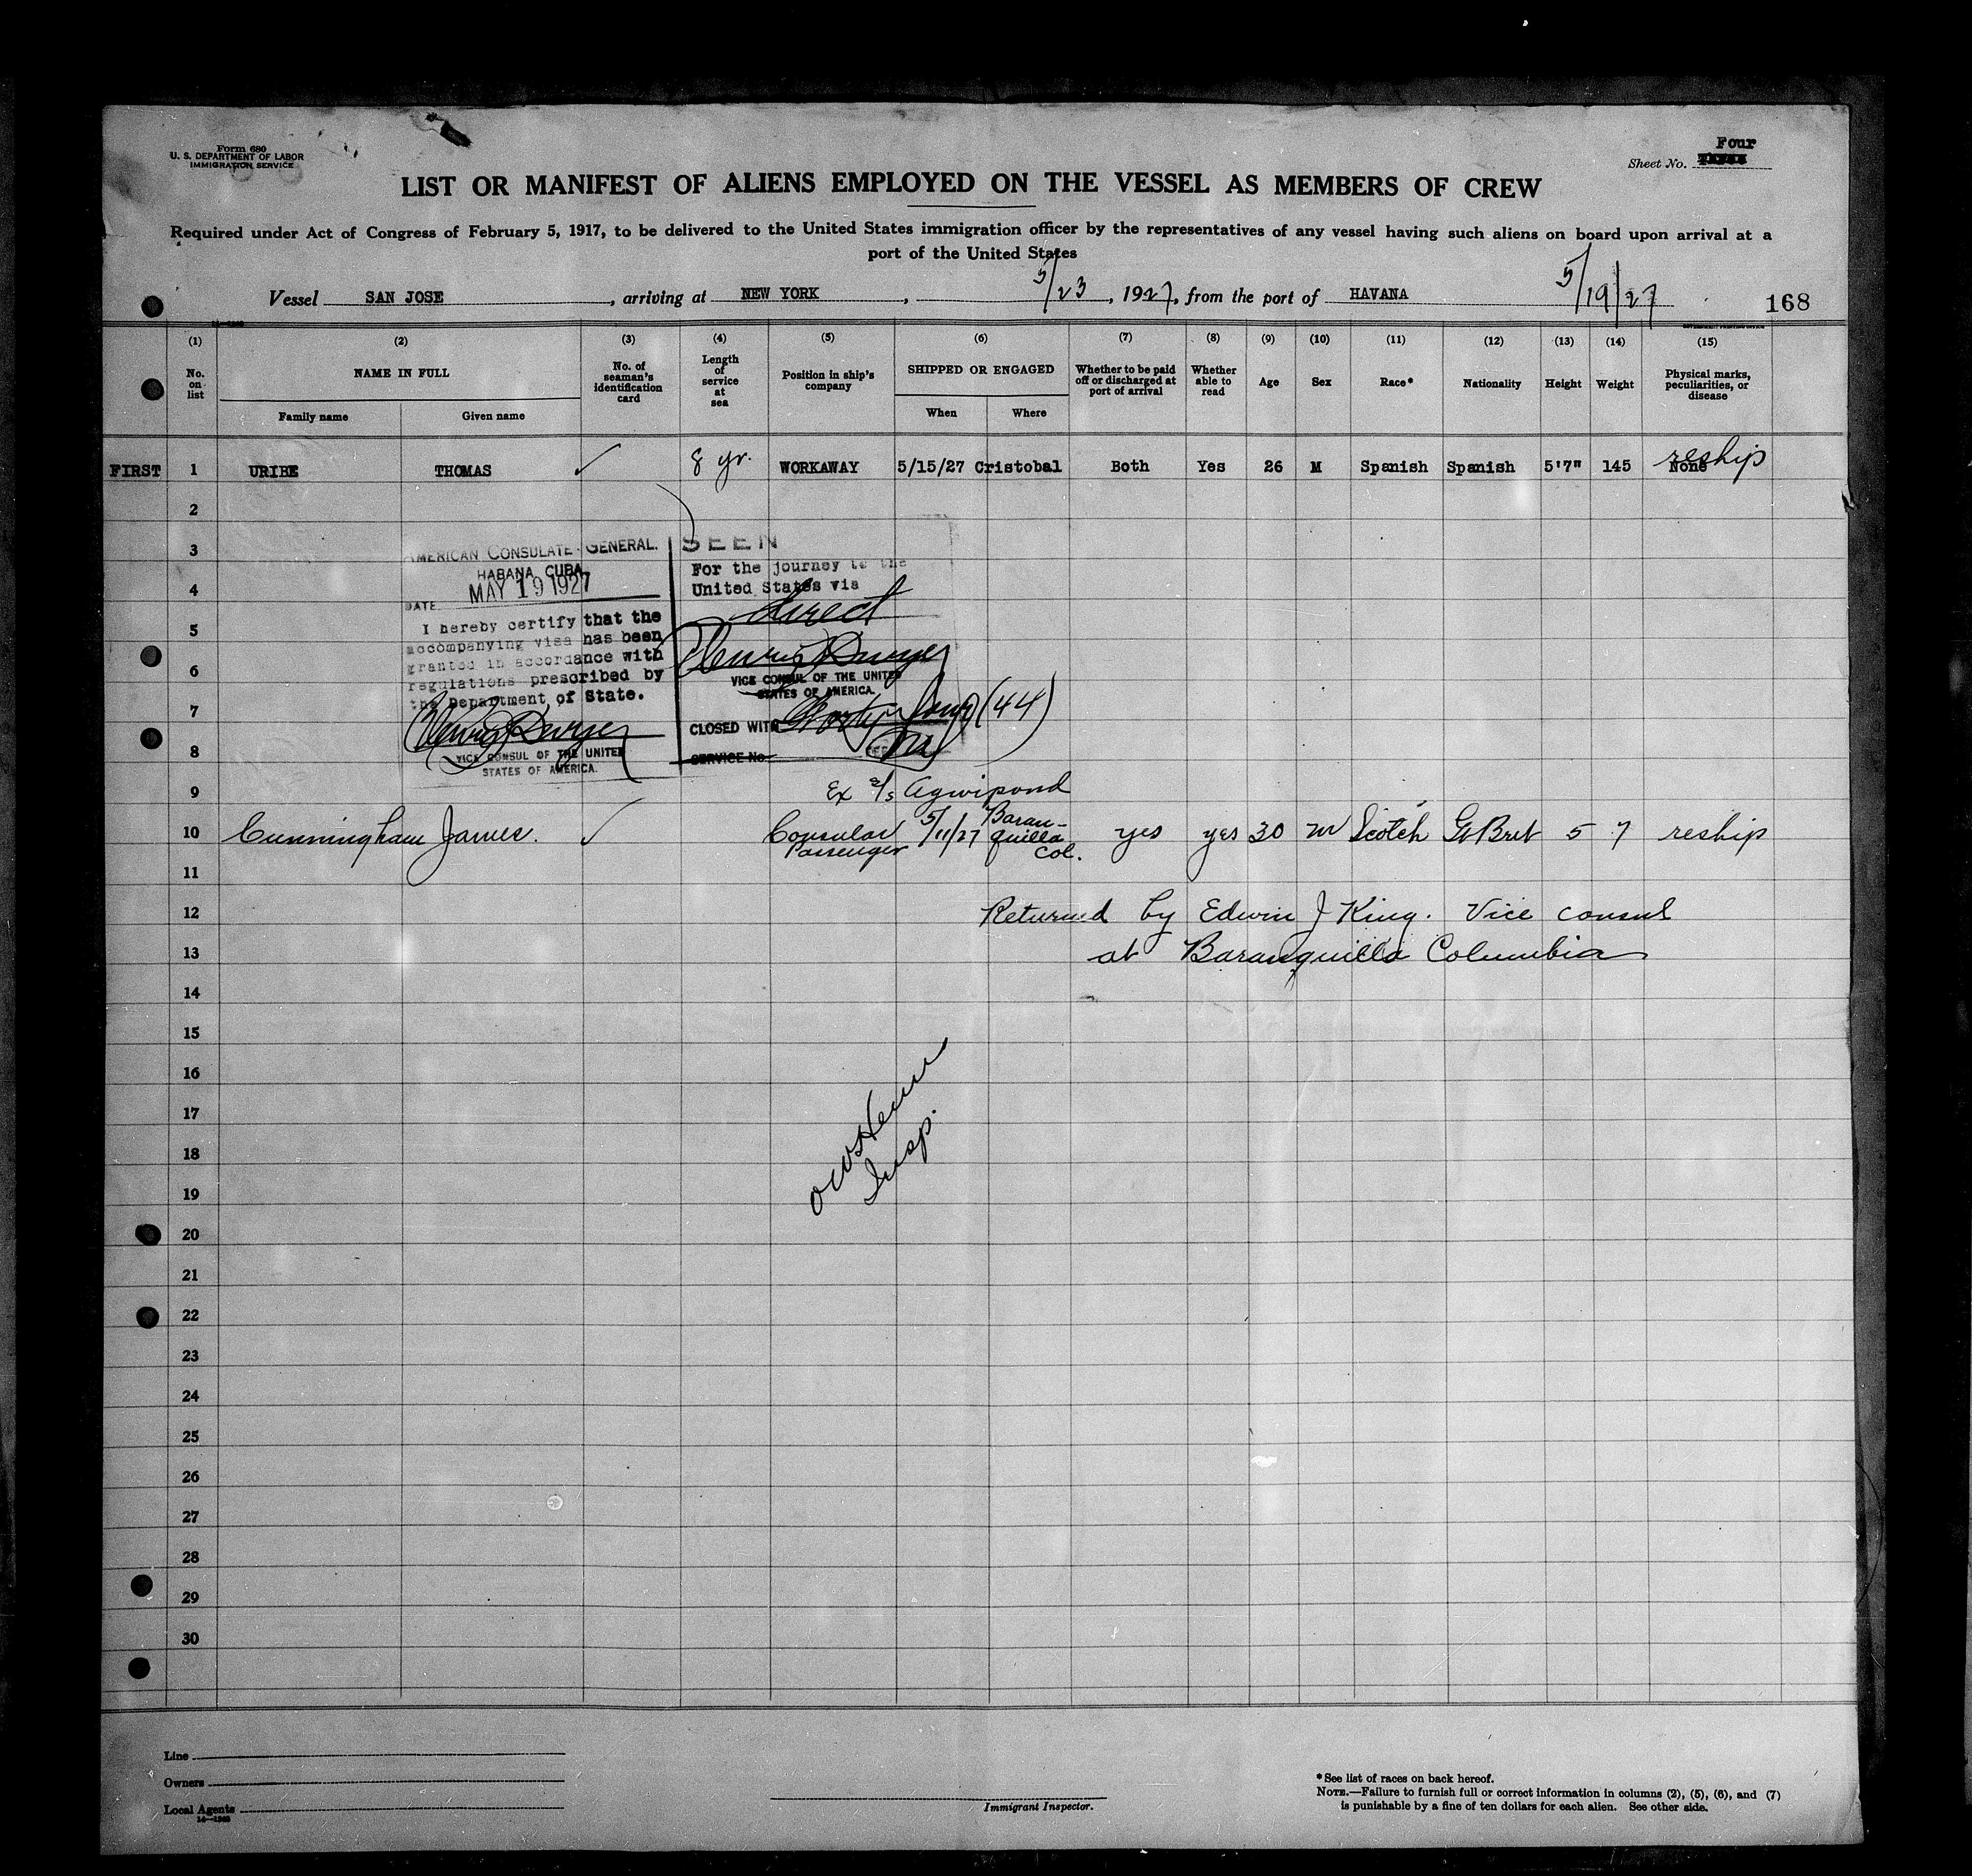 Form 680
U. S. DEPARTMENT OF LABOR
IMMIGRATION SERVICE
Four
Sheet No.
LIST OR MANIFEST OF ALIENS EMPLOYED ON THE VESSEL AS MEMBERS OF CREW
Required under Act of Congress of February 5, 1917, to be delivered to the United States immigration officer by the representatives of any vessel having such aliens on board upon arrival at a
port of the United States
Vessel SAN JOSE, arriving at NEW YORK, 5/23, 1927, from the port of HAVANA 5/19/27
168
(1) (2) (3) (4) (5) (6) (7) (8) (9) (10) (11) (12) (13) (14) (15)
No. on list
NAME IN FULL
Family name Given name
No. of seaman's identification card
Length of service at sea
Position in ship's company
SHIPPED OR ENGAGED
When Where
Whether to be paid off or discharged at port of arrival
Whether able to read
Age
Sex
Race*
Nationality
Height
Weight
Physical marks, peculiarities, or disease
reship
FIRST 1 URIBE THOMAS ✓ 8 yr. WORKAWAY 5/15/27 Cristobal Both Yes 26 M Spanish Spanish 5'7" 145 None
2
3
4
5
6
7
8
AMERICAN CONSULATE GENERAL.
HABANA CUBA
DATE MAY 19 1927
I hereby certify that the
accompanying visa has been
granted in accordance with
regulations prescribed by
the Department of State.
VICE CONSUL OF THE UNITED
STATES OF AMERICA.
SEEN
For the journey to the
United States via
direct
VICE CONSUL OF THE UNITED
STATES OF AMERICA.
CLOSED WITH Forty four (44)
SERVICE No.
9 Ex s/s Agwipond
10 Cunningham James. ✓ Consular Passenger 5/11/27 Baran-quilla Col. yes yes 30 m Scotch Gt Brit 5 7 reship
11
12 Returned by Edwin J King. Vice consul
13 at Baranquilla Columbia
14
15
16
17
18
19
Insp.
20
21
22
23
24
25
26
27
28
29
30
Line
Owners
Local Agents
Immigrant Inspector.
* See list of races on back hereof.
NOTE.—Failure to furnish full or correct information in columns (2), (5), (6), and (7)
is punishable by a fine of ten dollars for each alien. See other side.